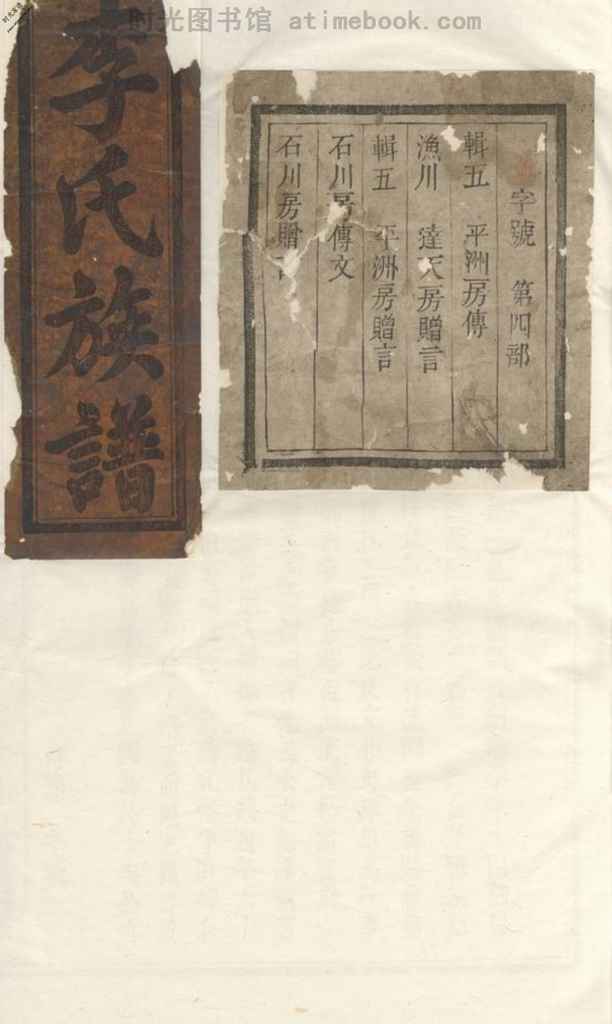 时光图书馆 atimebook.com
李氏族譜
字號 第四部
輯五 平洲房傳
漁川 達天房贈言
輯五 平洲房贈言
石川房傳文
石川房贈言